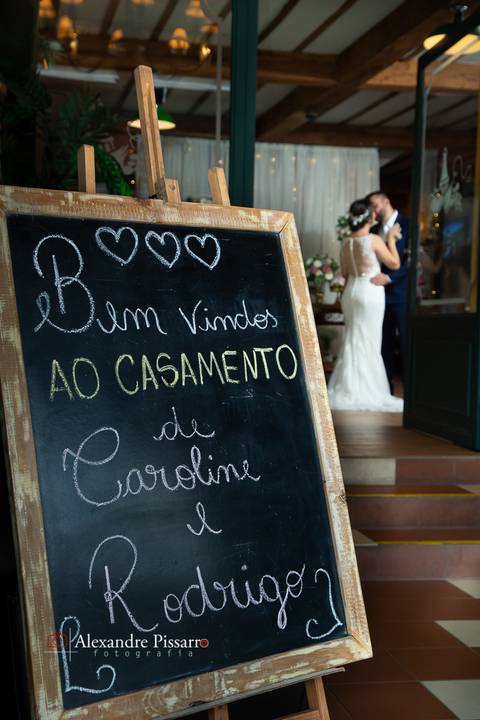 Bem Vindos
AO CASAMENTO
de
Caroline
e
Rodrigo
Alexandre Pissarro
fotografia